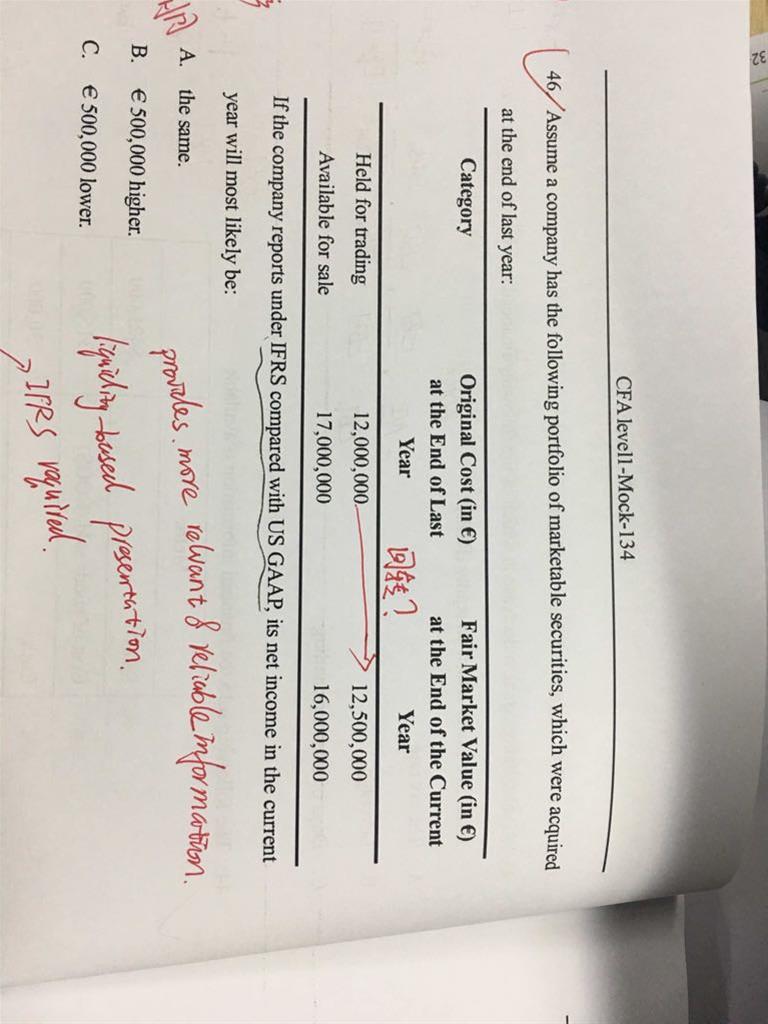 32
CFA level1-Mock-134
46 Assume a company has the following portfolio of marketable securities, which were acquired
at the end of last year:
Category Original Cost (in €) Fair Market Value (in €)
at the End of Last at the End of the Current
Year Year
回转?
Held for trading 12,000,000 12,500,000
Available for sale 17,000,000 16,000,000
If the company reports under IFRS compared with US GAAP, its net income in the current
year will most likely be:
A. the same.
B. €500,000 higher.
C. €500,000 lower.
provides more relevant & reliable information.
liquidity-based presentation.
IFRS required.